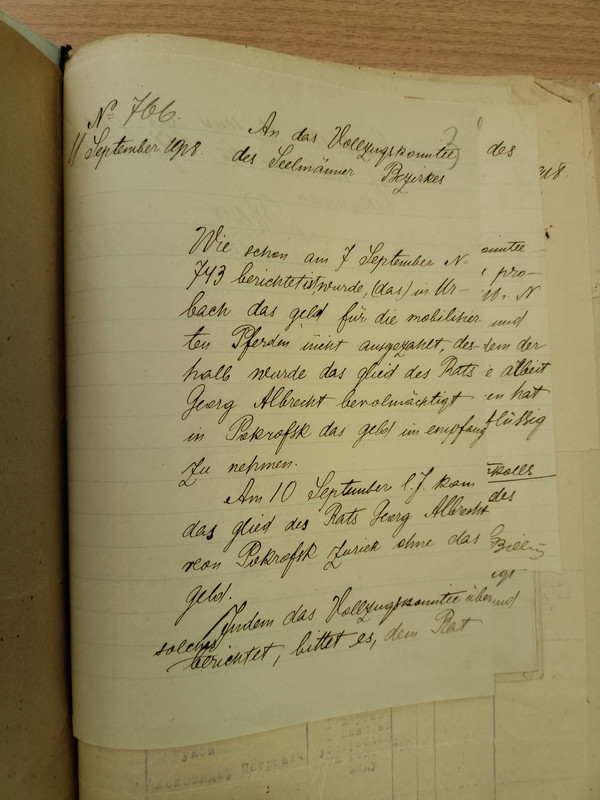 No 766.
11 September 1918.
An das Vollzugskomitee
des Seelmänner Bezirkes
3
Wie schon am 7 September N-
743 berichtet ist wurde, (das) in Ur-
bach das geld für die mobilisier
ten Pferden nicht ausgezahlt, des-
halb wurde das glied des Rats
Georg Albrecht bevolmächtigt
in Pokrofsk das geld im empfang
zu nehmen.
Am 10 September l. J. kam
das glied des Rats Georg Albrecht
von Pokrofsk zurück ohne das
geld.
Indem das Vollzugskomitee über
solches
berichtet, bittet es, dem Rat
des
918.
omitee
pro-
N
und
dem der
arbeit
en hat
flüssig
des
und